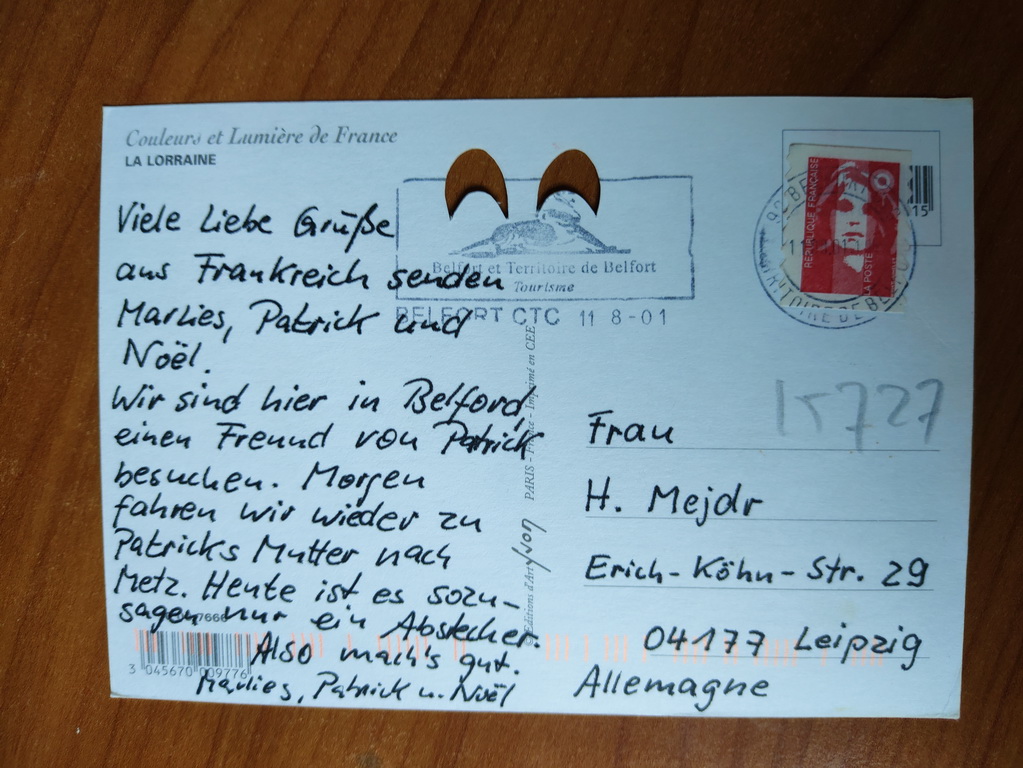 Couleurs et Lumière de France
LA LORRAINE
Viele Liebe Grüße
aus Frankreich senden
Marlies, Patrick und
Noël.
Wir sind hier in Belford,
einen Freund von Patrick
besuchen. Morgen
fahren wir wieder zu
Patricks Mutter nach
Metz. Heute ist es sozu-
sagen nur ein Abstecher.
Also mach's gut.
Marlies, Patrick u. Noël
3 045670 009776
Belfort et Territoire de Belfort
Tourisme
BELFORT CTC 11 8-01
Editions d'Art Yvon PARIS - France - Imprimé en CEE
RÉPUBLIQUE FRANÇAISE
LA POSTE
15
15727
Frau
H. Mejdr
Erich-Köhn-Str. 29
04177 Leipzig
Allemagne